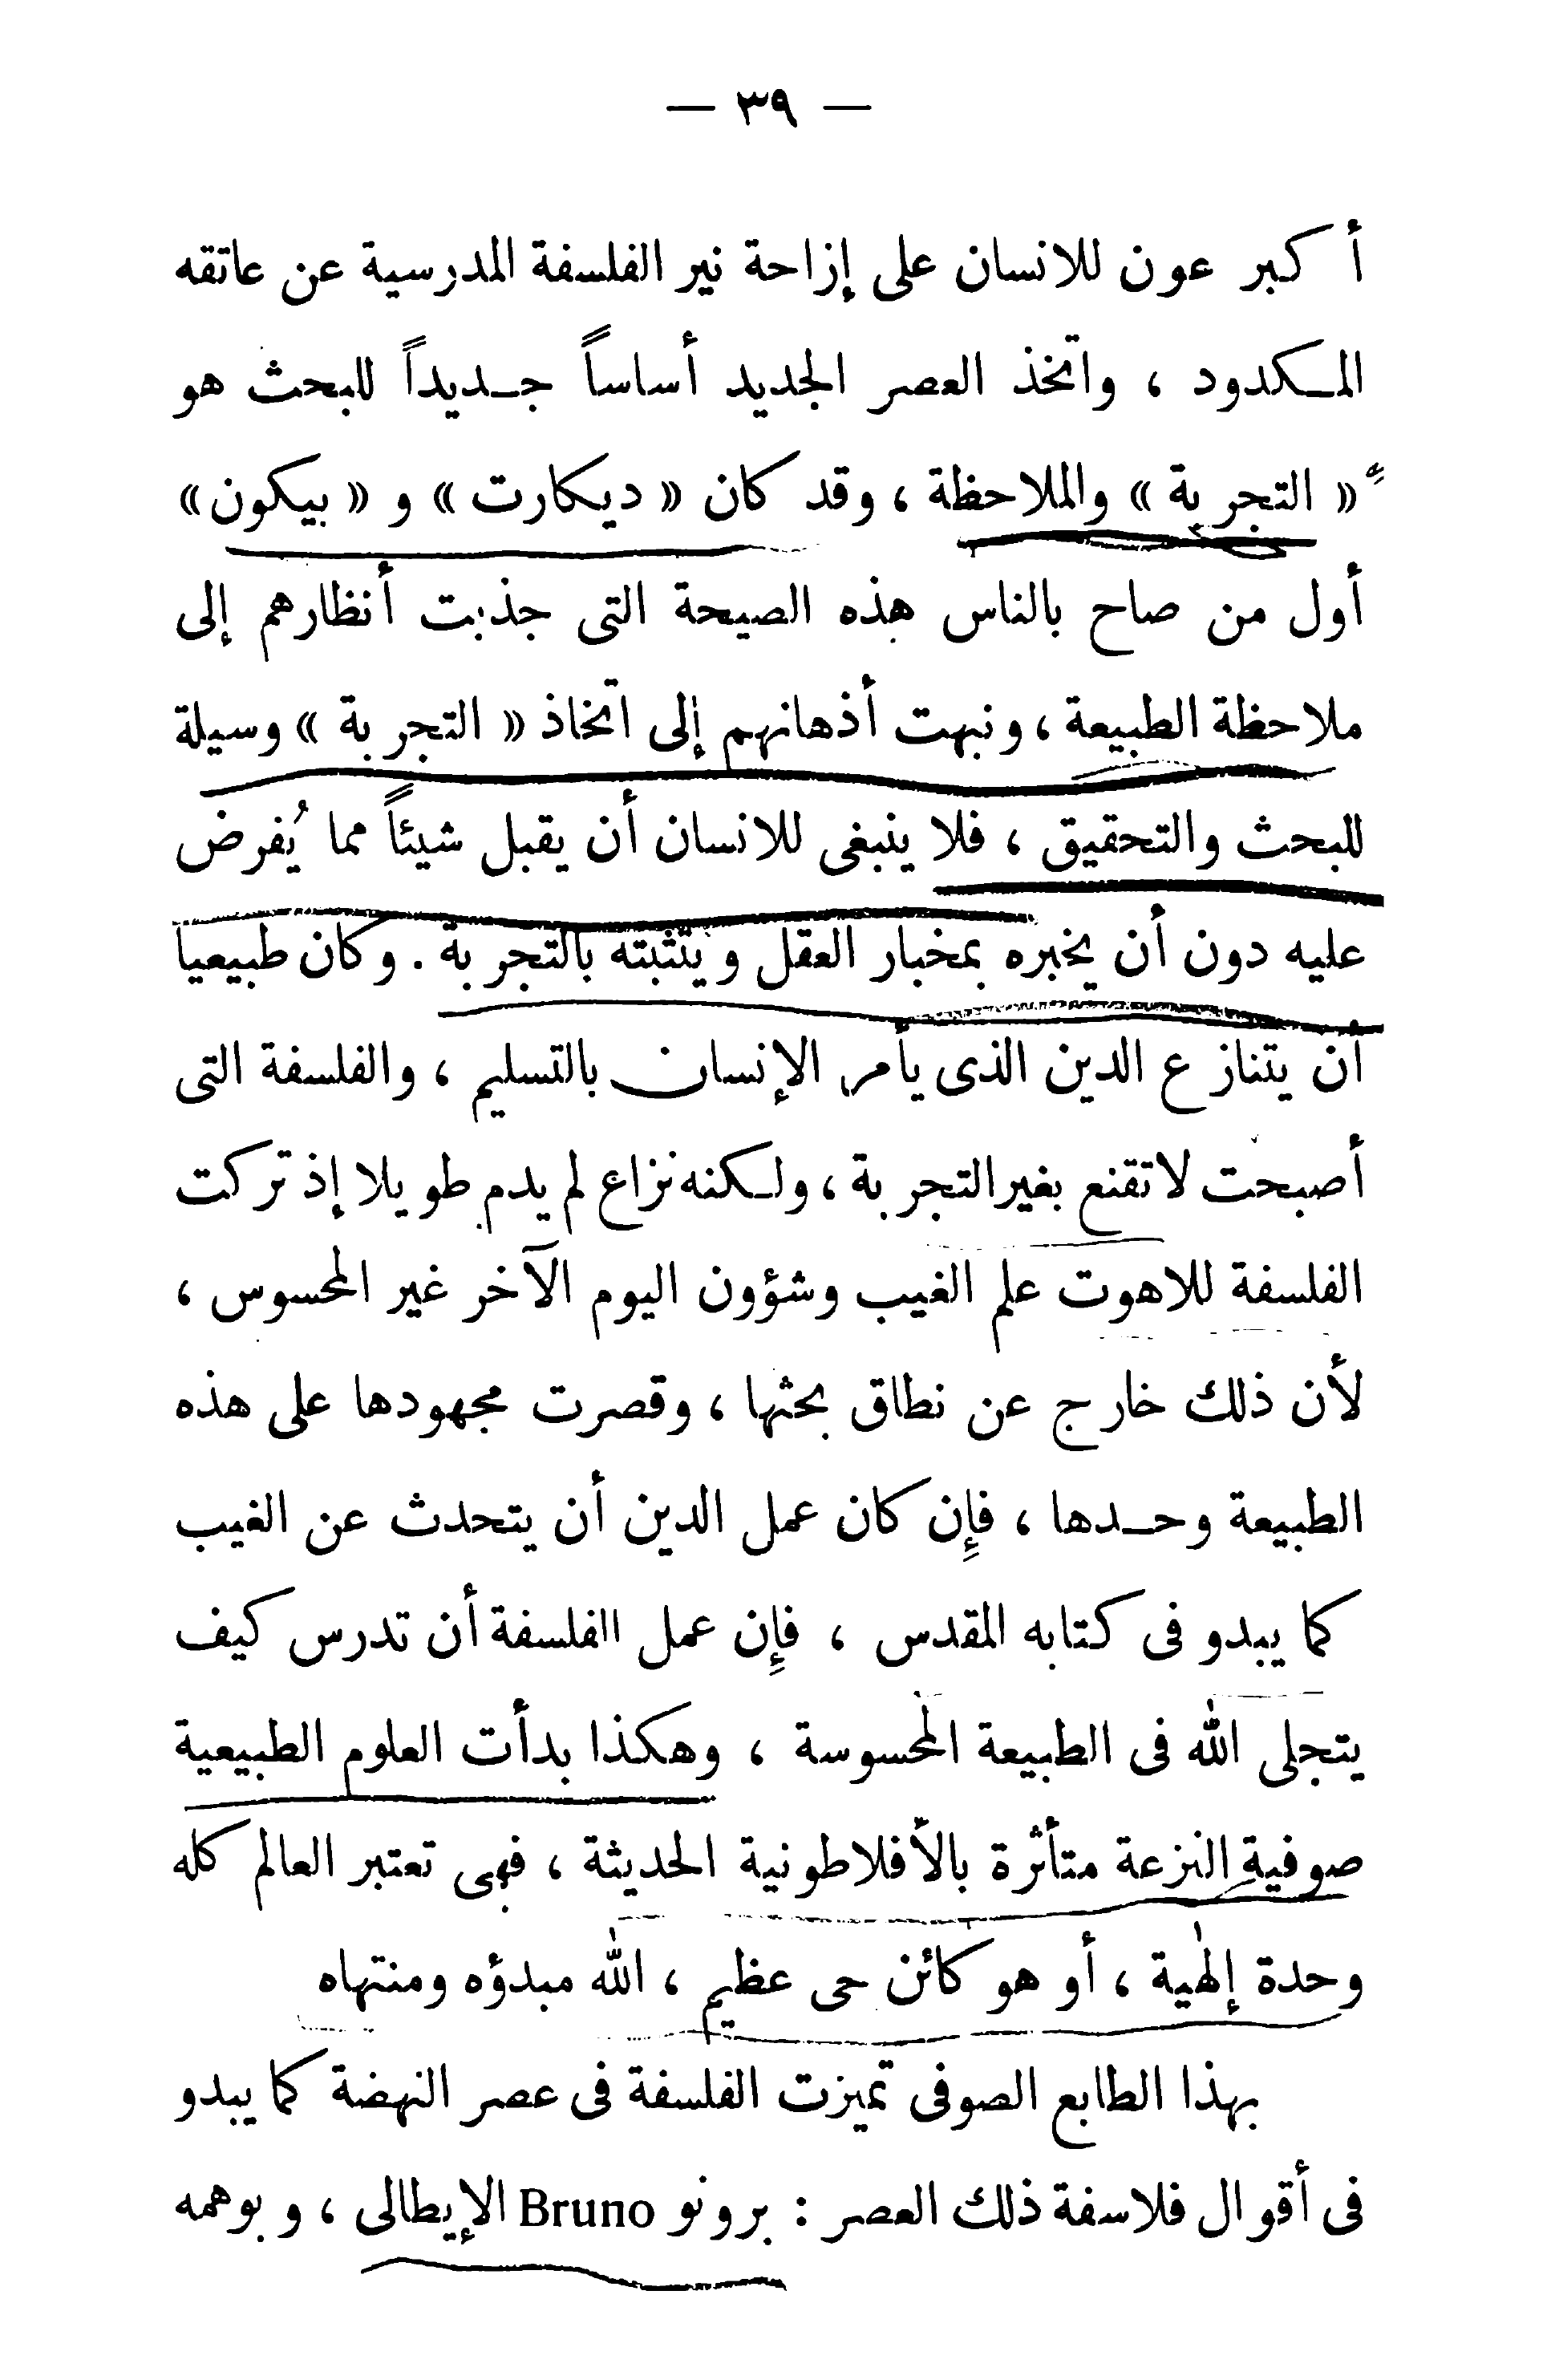 — ٣٩ —
أكبر عون للانسان على إزاحة نير الفلسفة المدرسية عن عاتقه
المكدود ، واتخذ العصر الجديد أساساً جديداً للبحث هو
« التجربة » والملاحظة ، وقد كان « ديكارت » و « بيكون »
أول من صاح بالناس هذه الصيحة التى جذبت أنظارهم إلى
ملاحظة الطبيعة ، ونبهت أذهانهم إلى اتخاذ « التجربة » وسيلة
للبحث والتحقيق ، فلا ينبغى للانسان أن يقبل شيئاً مما يُفرض
عليه دون أن يخبره بمخبار العقل ويتثبته بالتجربة . وكان طبيعيا
أن يتنازع الدين الذى يأمر الإنسان بالتسليم ، والفلسفة التى
أصبحت لا تقنع بغير التجربة ، ولكنه نزاع لم يدم طويلا إذ تركت
الفلسفة للاهوت علم الغيب وشؤون اليوم الآخر غير المحسوس ،
لأن ذلك خارج عن نطاق بحثها ، وقصرت مجهودها على هذه
الطبيعة وحدها ، فإِن كان عمل الدين أن يتحدث عن الغيب
كما يبدو فى كتابه المقدس ، فإِن عمل الفلسفة أن تدرس كيف
يتجلى الله فى الطبيعة المحسوسة ، وهكذا بدأت العلوم الطبيعية
صوفية النزعة متأثرة بالأفلاطونية الحديثة ، فهى تعتبر العالم كله
وحدة إلٰهية ، أو هو كائن حى عظيم ، الله مبدؤه ومنتهاه
بهذا الطابع الصوفى تميزت الفلسفة فى عصر النهضة كما يبدو
فى أقوال فلاسفة ذلك العصر : برونو Bruno الإيطالى ، وبوهمه